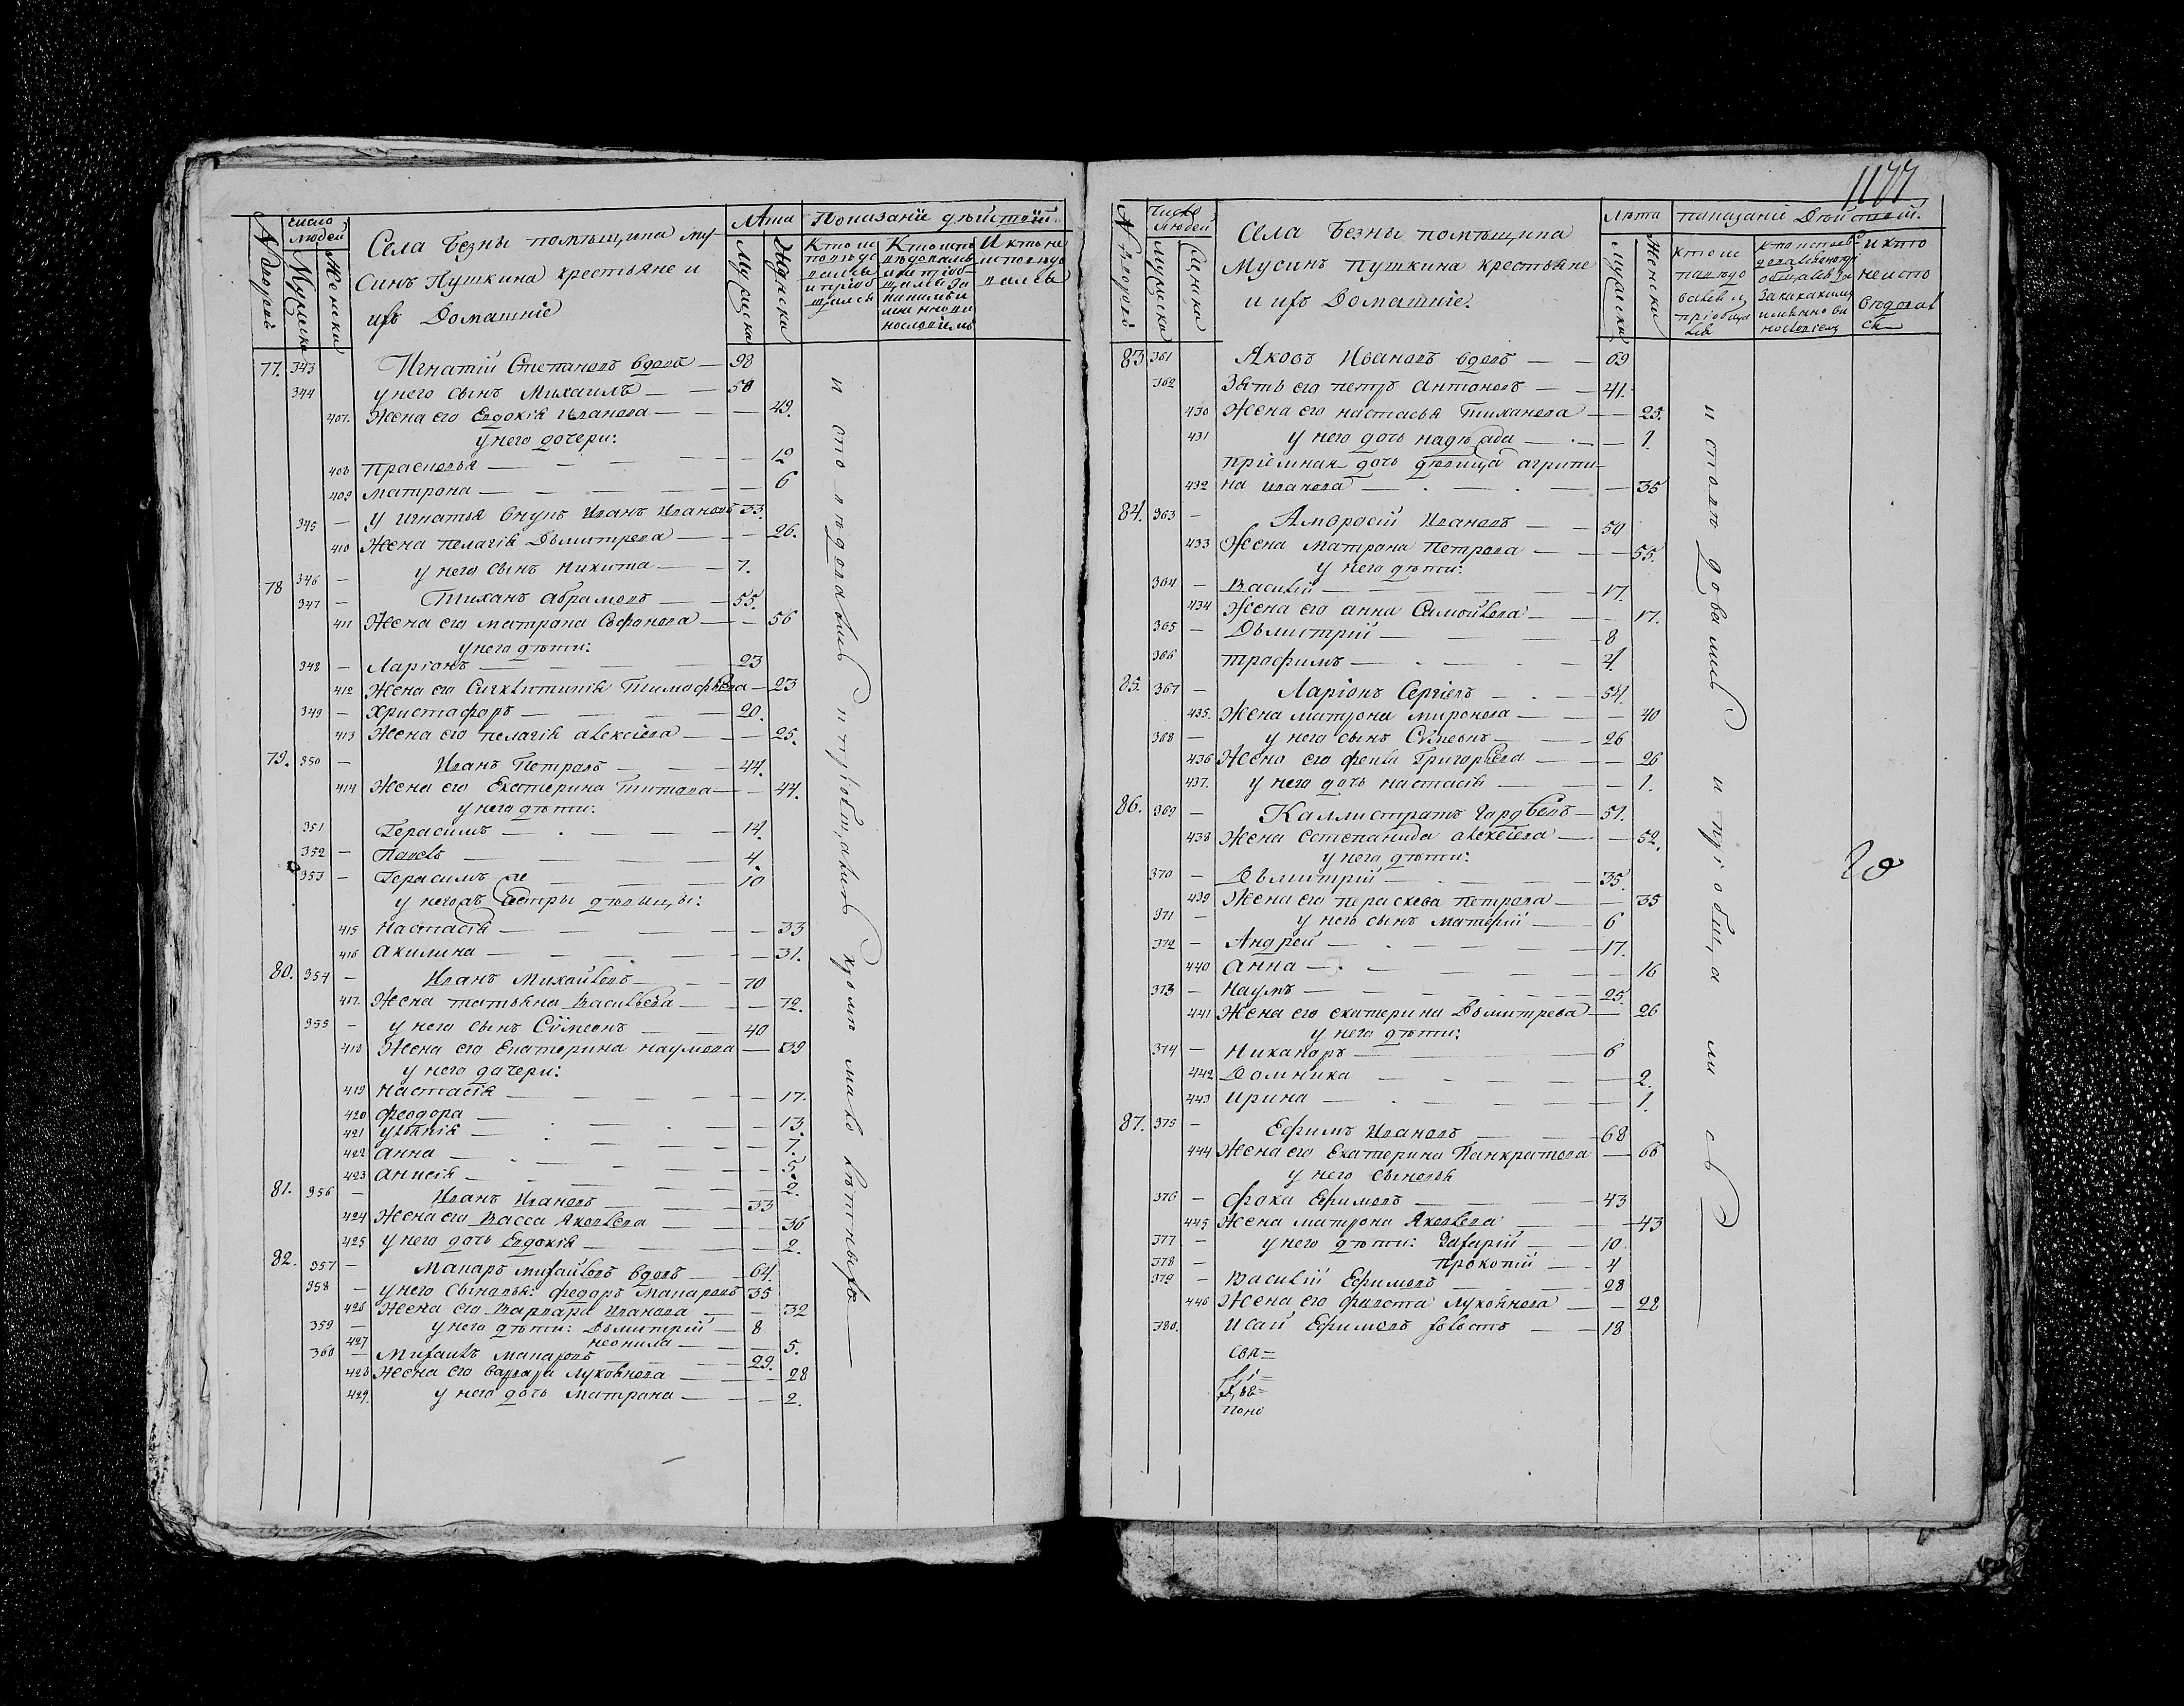 N дворовъ
число людей
Мужска
Женска
Села Безны помѣщика Му-
синъ Пушкина крестьяне и
ихъ Домашніе
Лѣта
Мужска
Женска
Показаніи дѣйствій
Кто ис
повѣдо
вались
и пріоб
щались
И кто не
исповѣдо
вались
77. 343 Игнатій Степановъ вдовъ — 98
344 у него сынъ Михаилъ — 58
407. Жена его Евдокія Иванова — 49.
у него дочери:
408 Прасковья — 12
409 Матрона — 6
345 — у Игнатья внукъ Иванъ Ивановъ 33.
410 Жена Пелагія Дъмитрева — 26.
346 — у него сынъ Никита — 7.
78 347 — Тиханъ Абрамовъ — 55.
411 Жена его Матрона Софонова — 56
у него дѣти:
348 — Ларіонъ — 23
412 Жена его Сигклитикія Тимофѣева — 23
349 — Христофоръ — 20.
413 Жена его Пелагія Алексіева — 25.
79. 350 — Иванъ Петровъ — 44.
414 Жена его Екатерина Титова — 44.
у него дѣти:
351 Герасимъ — 14.
352 — Павелъ — 4.
353 — Герасимъ же — 10
у него сестры дѣвицы:
415 Настасія — 33
416 Акилина — 31.
80. 354 — Иванъ Михайловъ — 70
417. Жена Татьяна Васильева — 72.
355 — у него сынъ Сѵмеонъ — 40
418 Жена его Екатерина Наумова — 39
у него дочери:
419 Настасія — 17.
420 Феодора — 13.
421 Ульянія — 7.
422 Анна — 5.
423 Анисія — 2.
81. 356 — Иванъ Ивановъ — 33
424 Жена его Васса Яковлева — 36
425 у него дочь Евдокія — 2.
82. 357 — Макаръ Михайловъ вдовъ — 64.
358 — у него сыновья: Федоръ Макаровъ 35
426 Жена его Варвара Иванова — 32
359 — у него дѣти: Дъмитрій — 8
427 Неонила — 5.
360 — Михаилъ Макаровъ — 29.
428 Жена его Варвара Лукоянова — 28
429. у него дочь Матрона — 2.
исповѣдовались и пріобщались кромѣ малолѣтныхъ
1177
N дворовъ
Число людей
Мужска
Женска
Села Безны помѣщика
Мусинъ Пушкина крестьяне
и ихъ Домашніе.
Лѣта
Мужска
Женска
показаніе Дѣйствій.
кто ис
повѣдо
вался и
пріобща
лся
и кто
не испо
вѣдовал
ся
83. 361 Яковъ Ивановъ вдовъ — 69
362 Зять его Петръ Антоновъ — 41.
430 Жена его Настасья Тиханова — 25.
431 у него дочь Надежда — 1.
пріемная дочь дѣвица Агрипи-
432 на Иванова — 35
84. 363 — Амвросій Ивановъ — 59
433 Жена Матрона Петрова — 55.
у него дѣти:
364 — Василій — 17.
434 Жена его Анна Самойлова — 17.
365 — Дъмитрій — 8
366 Трофимъ — 4.
85. 367 — Ларіонъ Сергіевъ — 54.
435. Жена Матрона Миронова — 40
368 — у него сынъ Сѵмеонъ — 26
436 Жена его Фекла Григорьева — 26
437. у него дочь Настасія — 1.
86. 369 — Каллистратъ Гордѣевъ — 51.
438 Жена Сстепанида Алексіева — 52.
у него дѣти:
370 — Дъмитрій — 35.
439 Жена его Параскева Петрова — 35
371 — у него сынъ Матфій — 6
372 — Андрей — 17.
440 Анна — 16
373 — Наумъ — 25.
441 Жена его Екатерина Дъмитрева — 26
у него дѣти:
374 — Никаноръ — 6
442 Домника — 2.
443 Ирина — 1.
87. 375 — Ефимъ Ивановъ — 68
444 Жена его Екатерина Панкратова — 66
у него сыновья
376 — Фока Ефимовъ — 43
445 Жена Матрона Яковлева — 43
377 — у него дѣти: Захарій — 10.
378 — Прокопій — 4
379 — Василій Ефимовъ — 28
446 Жена его Фавста Лукоянова — 28
380. Исай Ефимовъ холостъ — 18
исповѣдовались и пріобщались